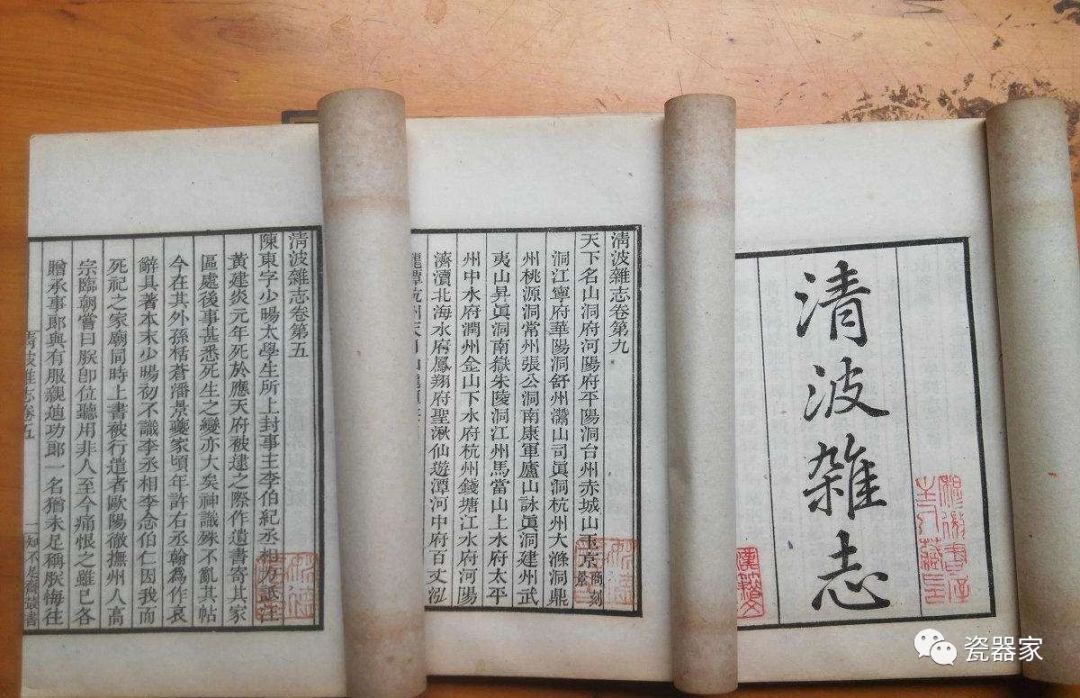 清波雜志
清波雜志卷第九
天下名山洞府河陽府平陽洞台州赤城山玉京
洞江寧府華陽洞舒州灊山司眞洞杭州大滌洞鼎
州桃源洞常州張公洞南康軍廬山詠眞洞建州武
夷山昇眞洞南嶽朱陵洞江州馬當山上水府太平
州中水府潤州金山下水府杭州錢塘江水府河陽
濟瀆北海水府鳳翔府聖湫仙遊潭河中府百丈泓
龍潭杭州天目山
清波雜志卷第五
陳東字少暘太學生所上封事主李伯紀丞相力詆汪
黃建炎元年死於應天府被逮之際作遺書寄其家
區處後事甚悉死生之變亦大矣神識殊不亂其帖
今在其外孫栝蒼潘景夔家頃年許右丞翰爲作哀
辭具著本末少暘初不識李丞相李念伯仁因我而
死祀之家廟同時上書被行遣者歐陽徹撫州人高
宗臨朝嘗曰朕卽位聽用非人至今痛恨之雖已各
贈承事郎與有服親迪功郎一名猶未足稱朕悔往
清波雜志卷五 一 知不足齋叢書
瓷器家